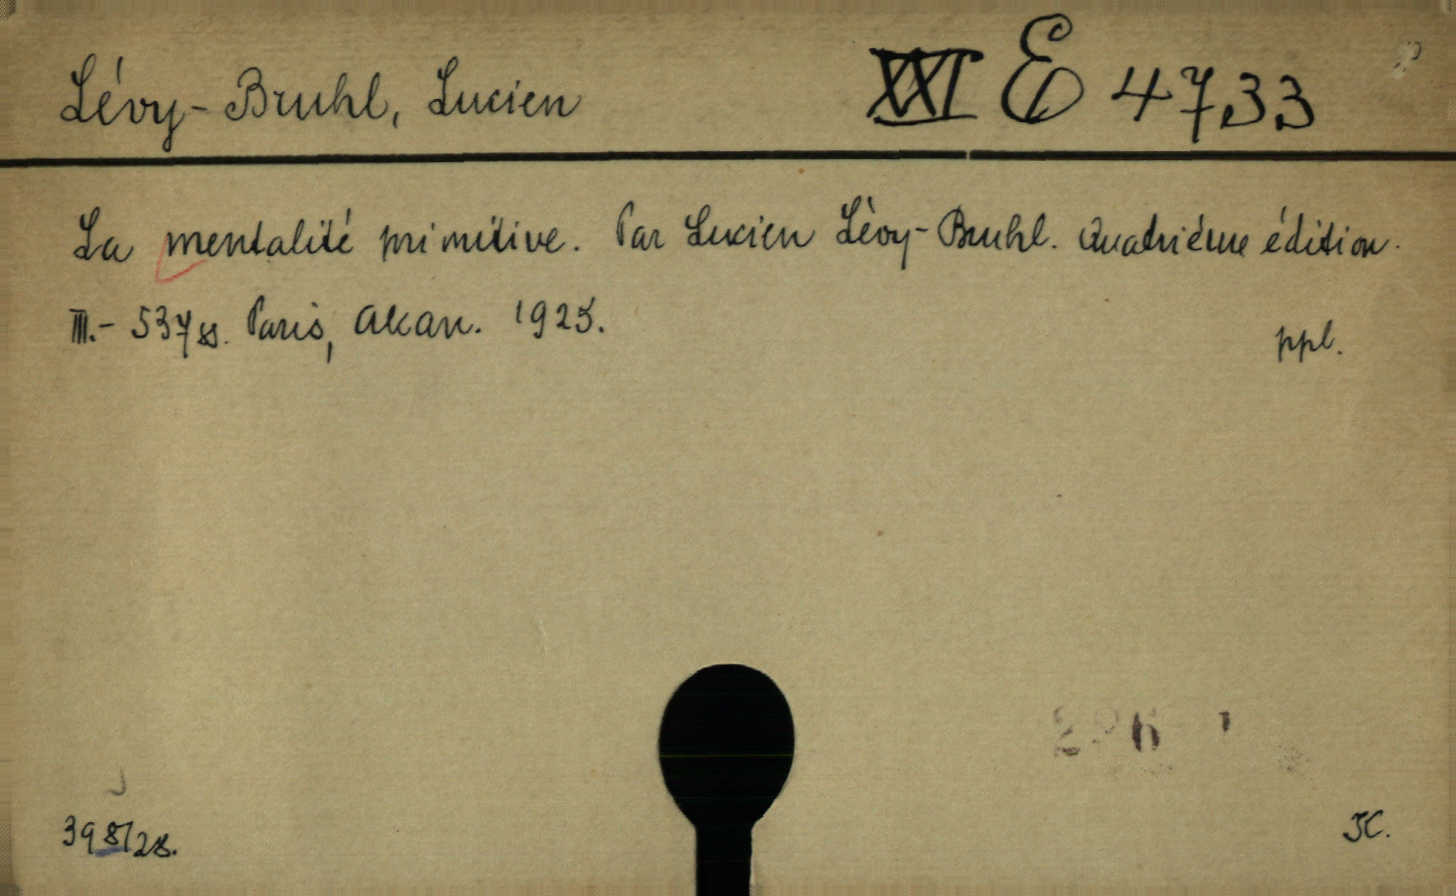 Lévy-Bruhl, Lucien XXI E 4733
La mentalité primitive. Par Lucien Lèvy-Bruhl. Quatriéme édition.
III.- 537 ss. Paris, Alcan. 1925.
ppl.
398/28.